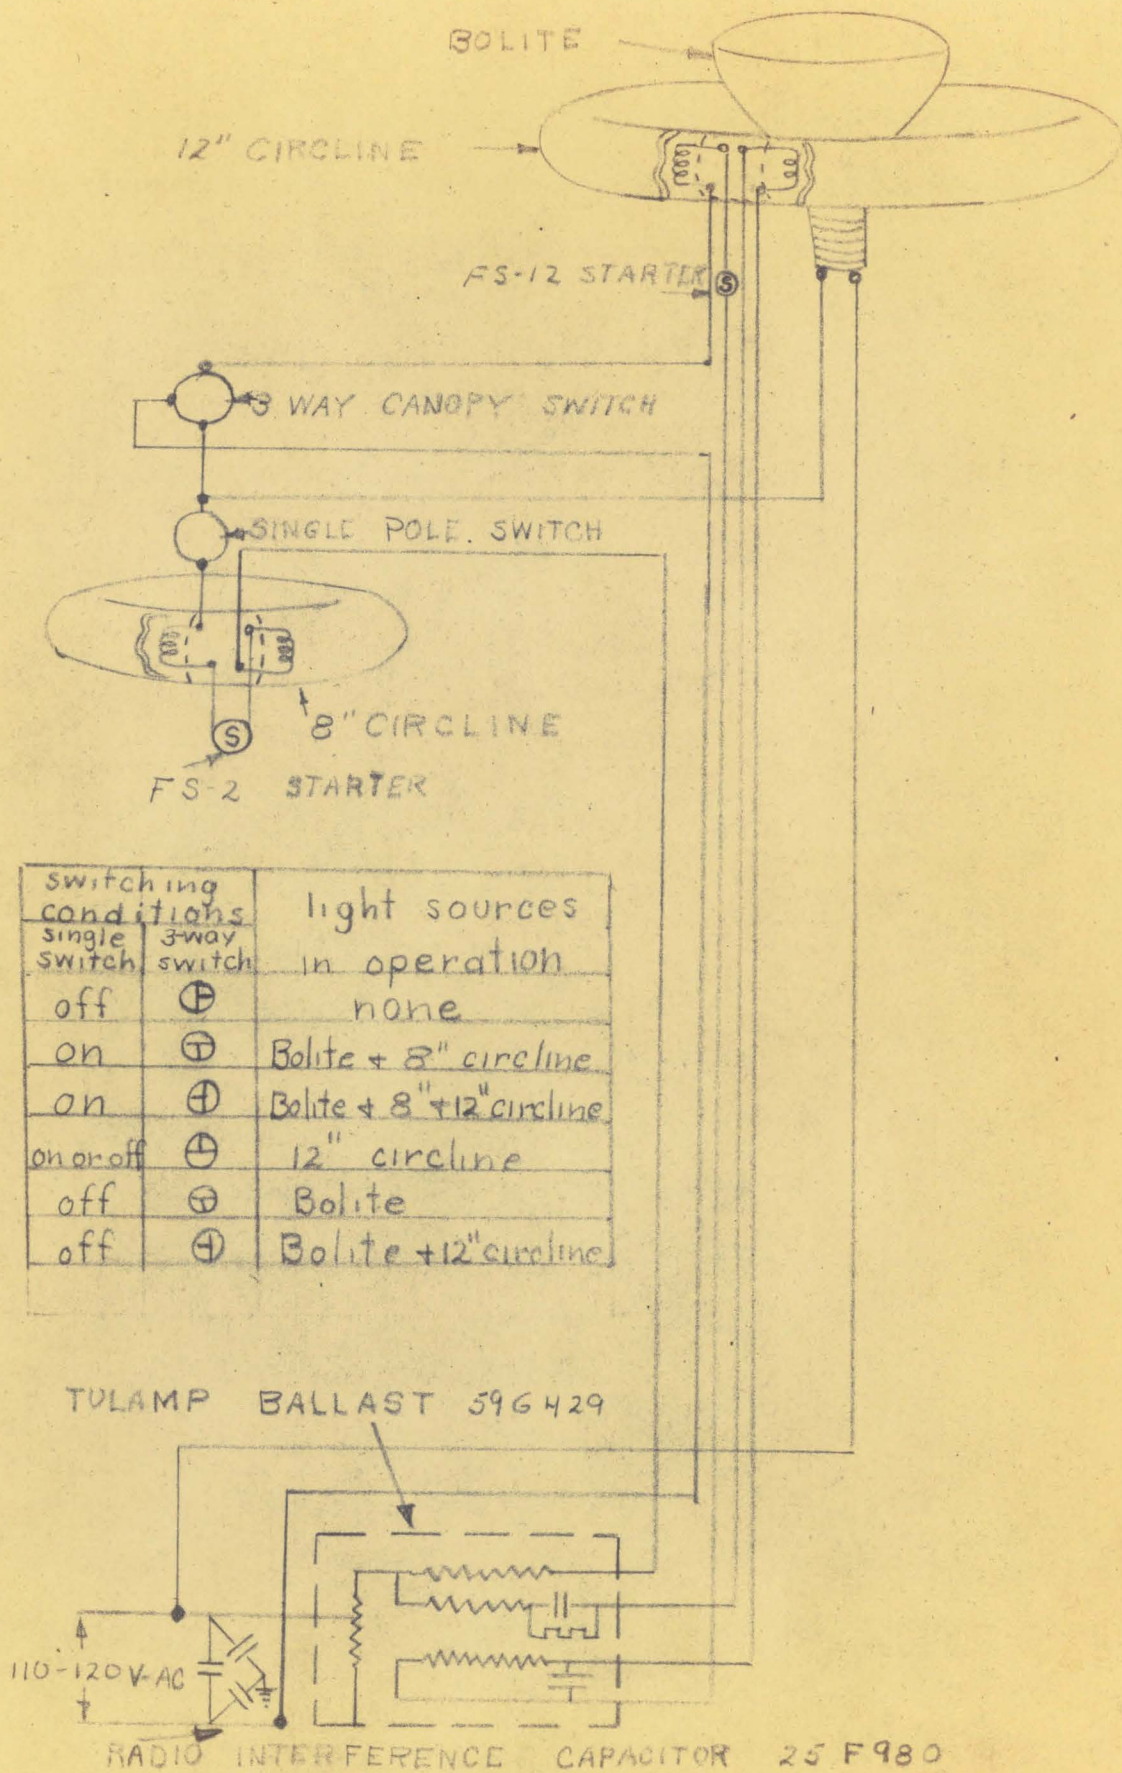 BOLITE
12" CIRCLINE
FS-12 STARTER
S
3 WAY CANOPY SWITCH
SINGLE POLE. SWITCH
8" CIRCLINE
S
FS-2 STARTER
switching conditions
light sources in operation
single switch
3-way switch
off
none
on
Bolite + 8" circline
on
Bolite + 8" + 12" circline
on or off
12" circline
off
Bolite
off
Bolite + 12" circline
TULAMP BALLAST 59G429
110-120V-AC
RADIO INTERFERENCE CAPACITOR 25F980